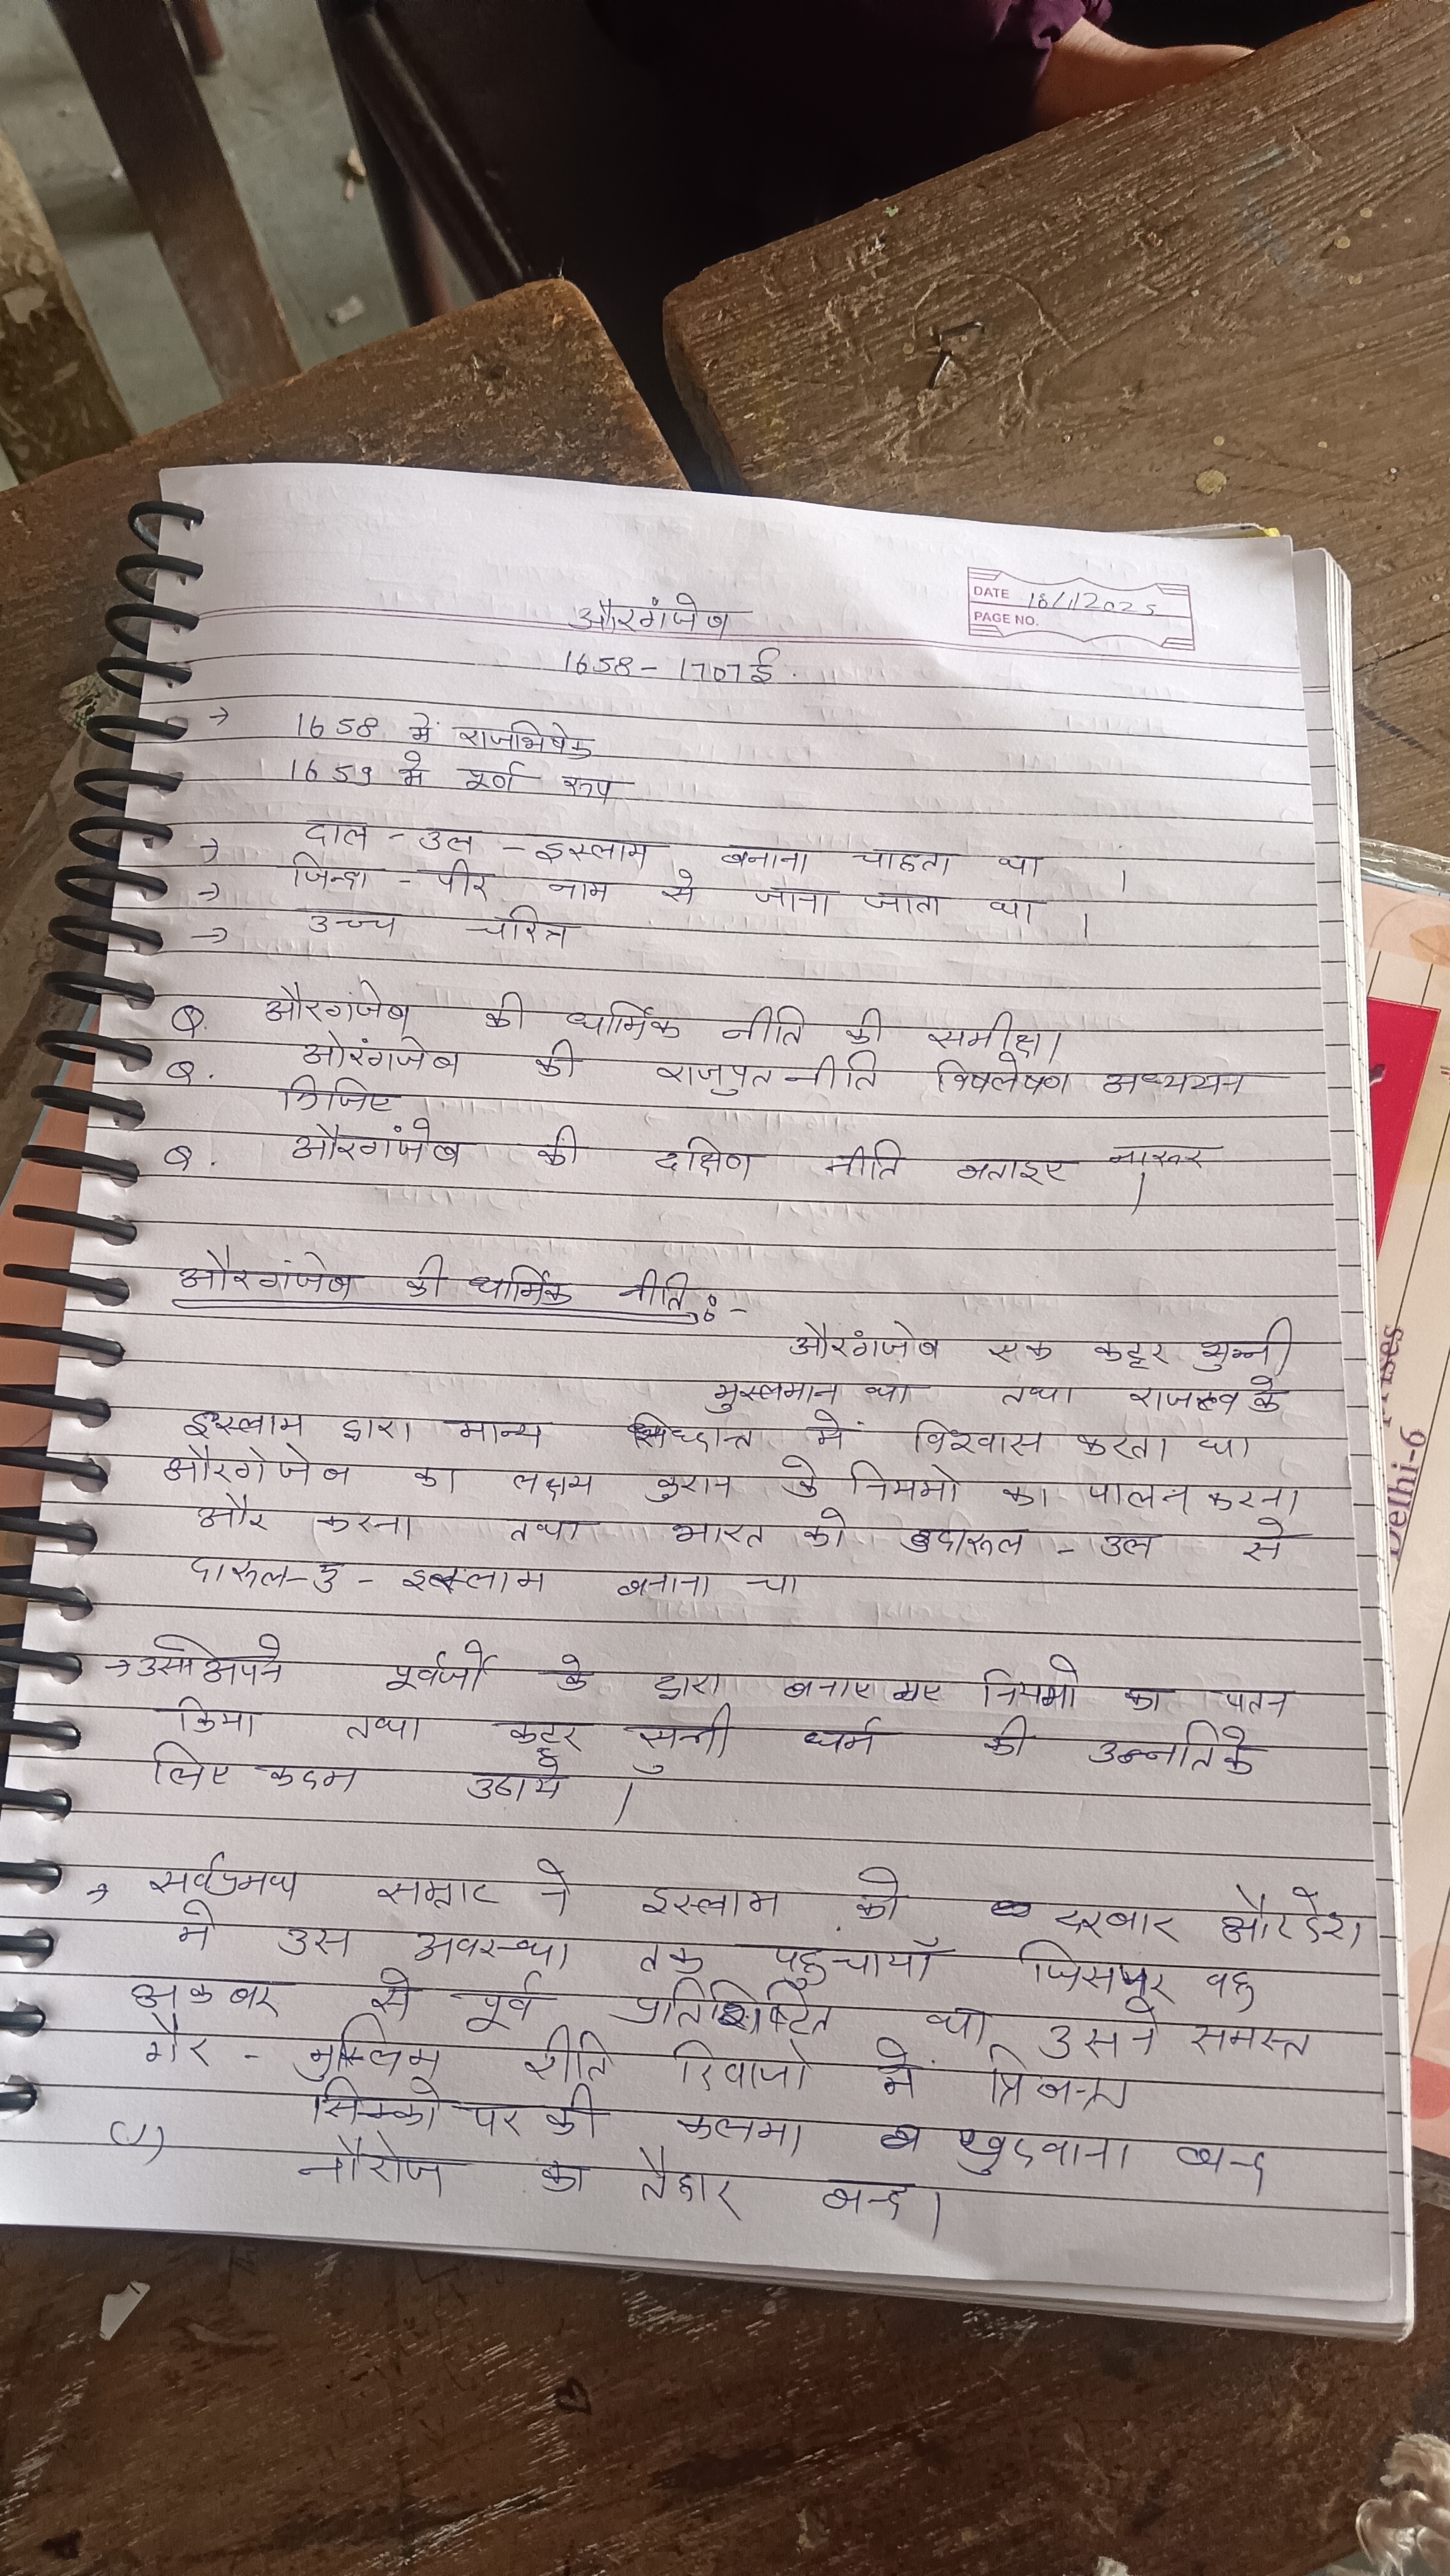 DATE 18/1/2025
PAGE NO.
औरगंजेब
1658 - 1707 ई.
→ 1658 में राजभिषेक
1659 मे पूर्ण रूप
→ दाल - उल - इस्लाम बनाना चाहता था ।
→ जिन्दा - पीर नाम से जाना जाता था ।
→ उच्च चरित्र
Q. औरगंजेब की धार्मिक नीति की समीक्षा
Q. औरंगजेब की राजपुत नीति विषलेषण अध्ययन
किजिए
Q. औरगंजेब की दक्षिण नीति बताइए
औरगंजेब की धार्मिक नीति :-
औरंगजेब एक कट्टर सुन्नी
मुस्लमान था तथा राजत्व के
इस्लाम द्वारा मान्य सिध्दान्त में विश्वास करता था
औरगंजेब का लक्ष्य कुरान के नियमो का पालन करना
और करना तथा भारत को दारूल - उल से
दारूल-उ - इस्लाम बनाना था
→ उसने अपने पूर्वजों के द्वारा बनाए गए नियमो का पतन
किया तथा कट्टर सुन्नी धर्म की उन्नति के
लिए कदम उठाये ।
→ सर्वप्रमथ सम्राट ने इस्लाम को दरबार और देश
मे उस अवस्था तक पहुचायाँ जिसपर वह
अकबर से पूर्व था उसने समस्त
गैर - मुस्लिम रीति रिवाजो में
सिक्को पर की कलमा खुदवाना बन्द
(1) नौरोज का तैहार बन्द।
Delhi-6